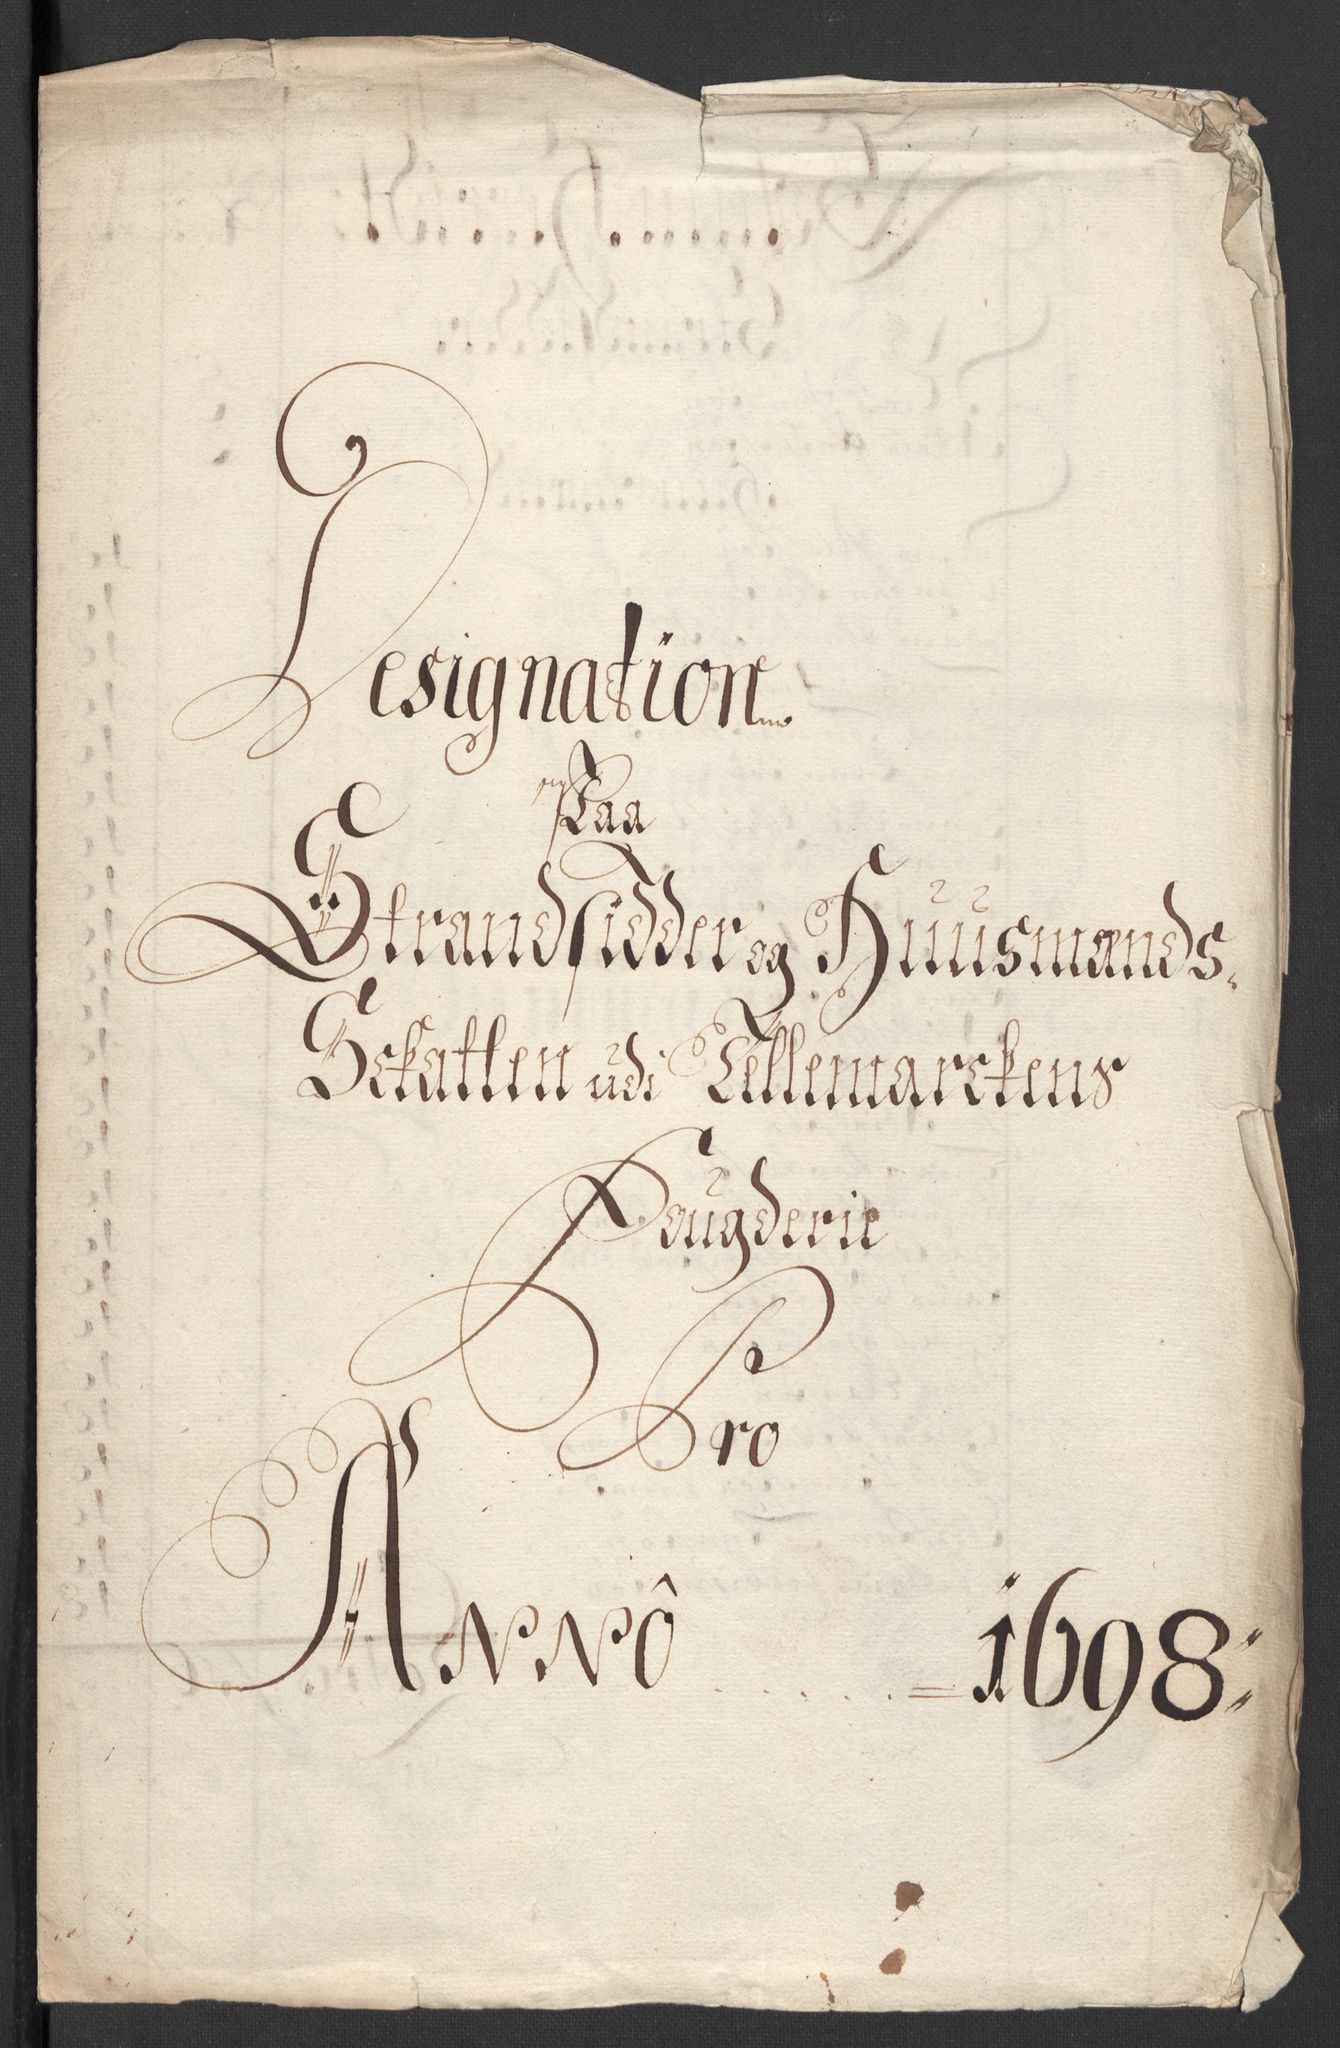 Designation
Paa
Strandsidder og Huusmænds
Schatten udi Tellemarckens
Fougderie
Pro
Annô 1698